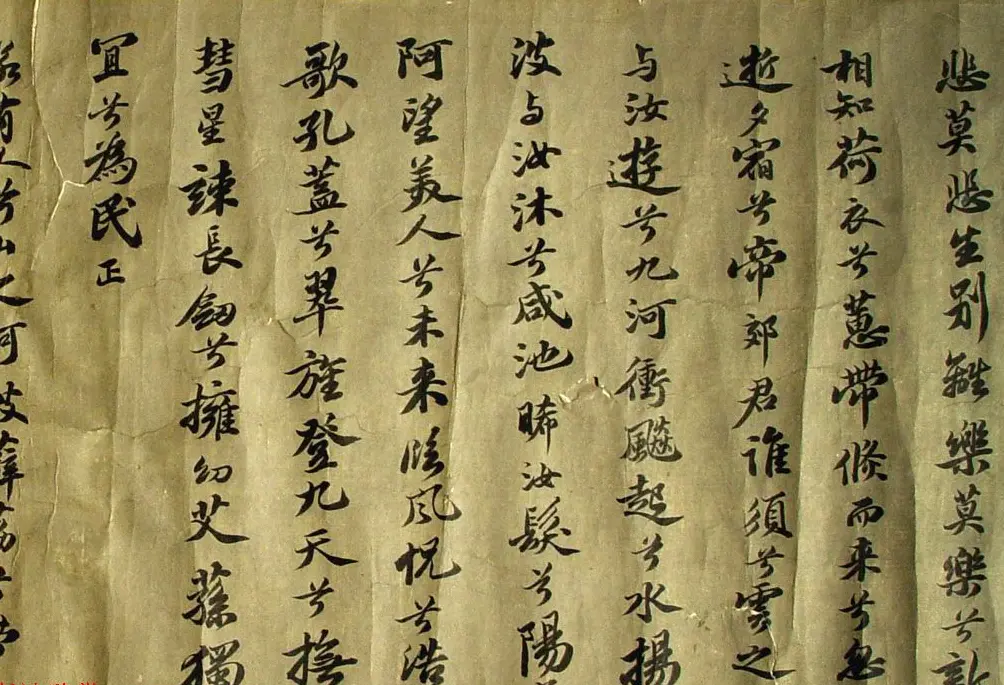 悲莫悲生別離樂莫樂兮新
相知荷衣兮蕙帶倐而来兮忽
逝夕宿兮帝郊君誰須兮雲之
与汝遊兮九河衝飈起兮水揚
波与汝沐兮咸池晞汝髮兮陽
阿望美人兮未来臨風怳兮浩
歌孔蓋兮翠旌登九天兮撫
彗星竦長劒兮擁幼艾蓀獨
宜兮為民正
若有人兮山之阿披薜荔兮